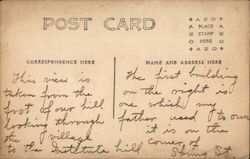 POST CARD
AZO
PLACE
STAMP
HERE
AZO
CORRESPONDENCE HERE
NAME AND ADDRESS HERE
This view is
taken from the
foot of our hill
looking through
the village
to the Institute hill
The first building
on the right is
one which my
father used to own
it is on the
corner of
Spring St